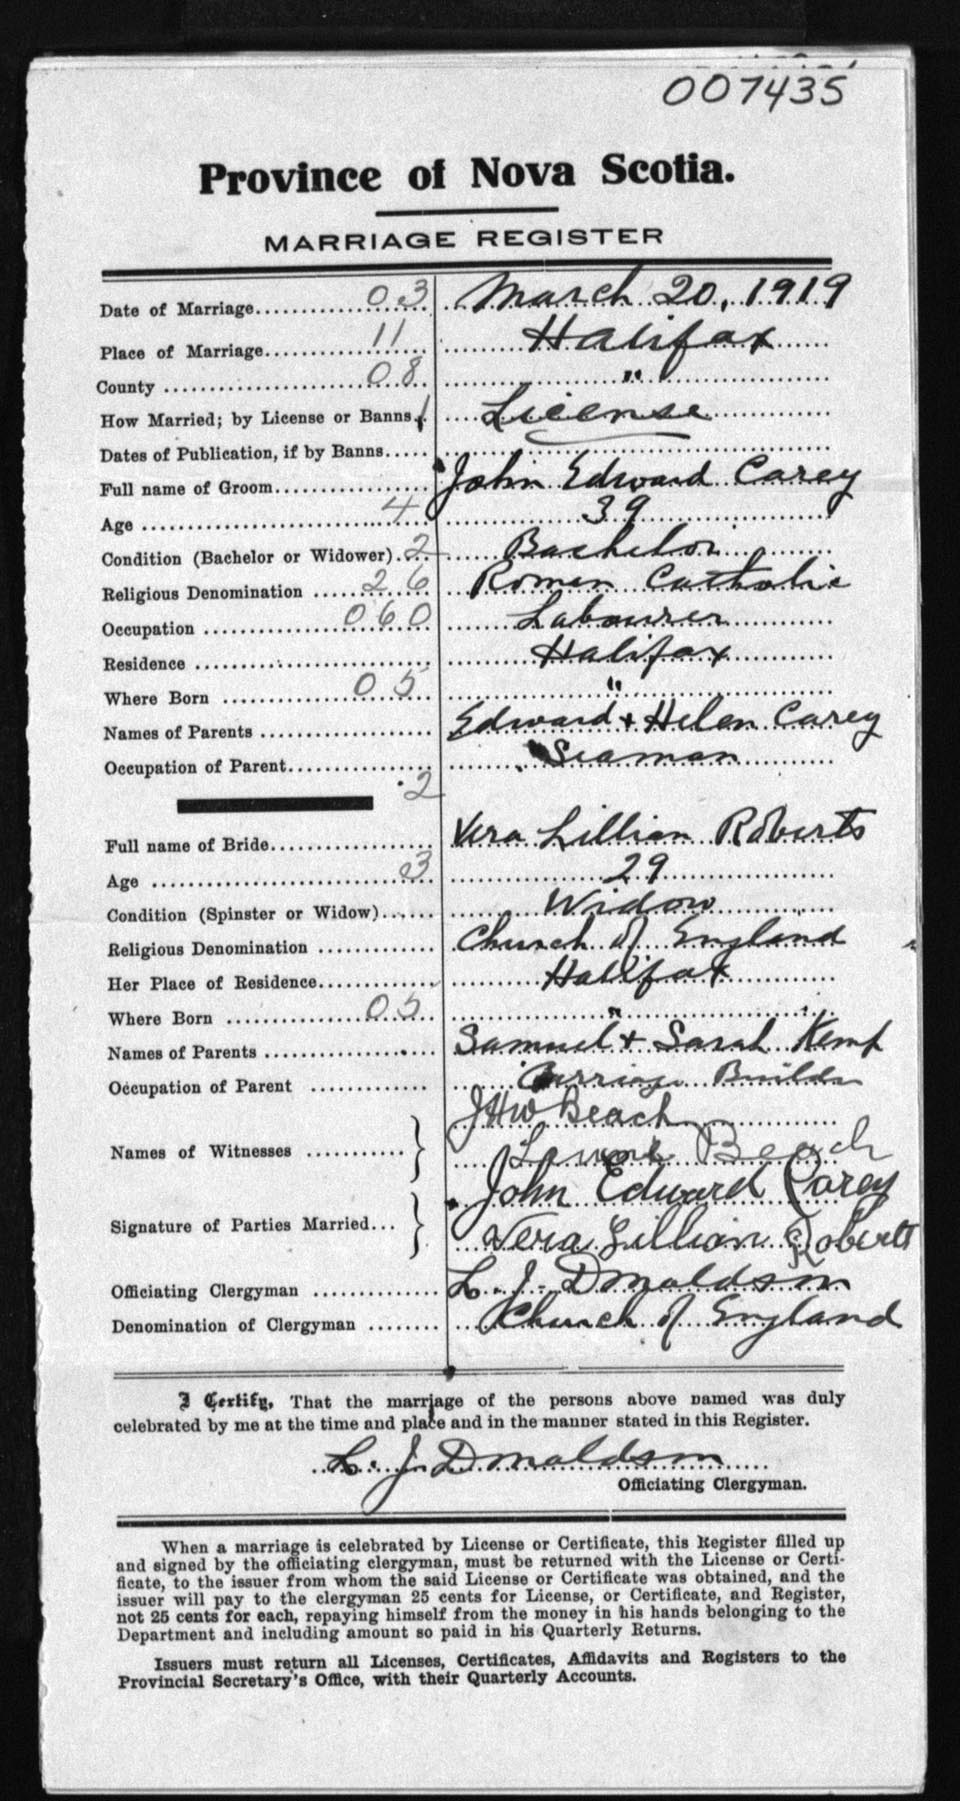 007435
Province of Nova Scotia.
MARRIAGE REGISTER
Date of Marriage 03 March 20, 1919
Place of Marriage 11 Halifax
County 08 "
How Married; by License or Banns 1 License
Dates of Publication, if by Banns
Full name of Groom John Edward Carey
Age 4 39
Condition (Bachelor or Widower) 2 Bachelor
Religious Denomination 26 Roman Catholic
Occupation 060 Labourer
Residence Halifax
Where Born 05 "
Names of Parents Edward + Helen Carey
Occupation of Parent Seaman
2
Full name of Bride Vera Lillian Roberts
Age 3 29
Condition (Spinster or Widow) Widow
Religious Denomination Church of England
Her Place of Residence Halifax
Where Born 05 "
Names of Parents Samuel + Sarah Kemp
Occupation of Parent Carriage Builder
JHW Beach
Names of Witnesses Beach
John Edward Carey
Signature of Parties Married
Vera Lillian Roberts
Officiating Clergyman L. J. Donaldson
Denomination of Clergyman Church of England
I Certify, That the marriage of the persons above named was duly
celebrated by me at the time and place and in the manner stated in this Register.
L. J. Donaldson
Officiating Clergyman.
When a marriage is celebrated by License or Certificate, this Register filled up
and signed by the officiating clergyman, must be returned with the License or Certi-
ficate, to the issuer from whom the said License or Certificate was obtained, and the
issuer will pay to the clergyman 25 cents for License, or Certificate, and Register,
not 25 cents for each, repaying himself from the money in his hands belonging to the
Department and including amount so paid in his Quarterly Returns.
Issuers must return all Licenses, Certificates, Affidavits and Registers to the
Provincial Secretary's Office, with their Quarterly Accounts.